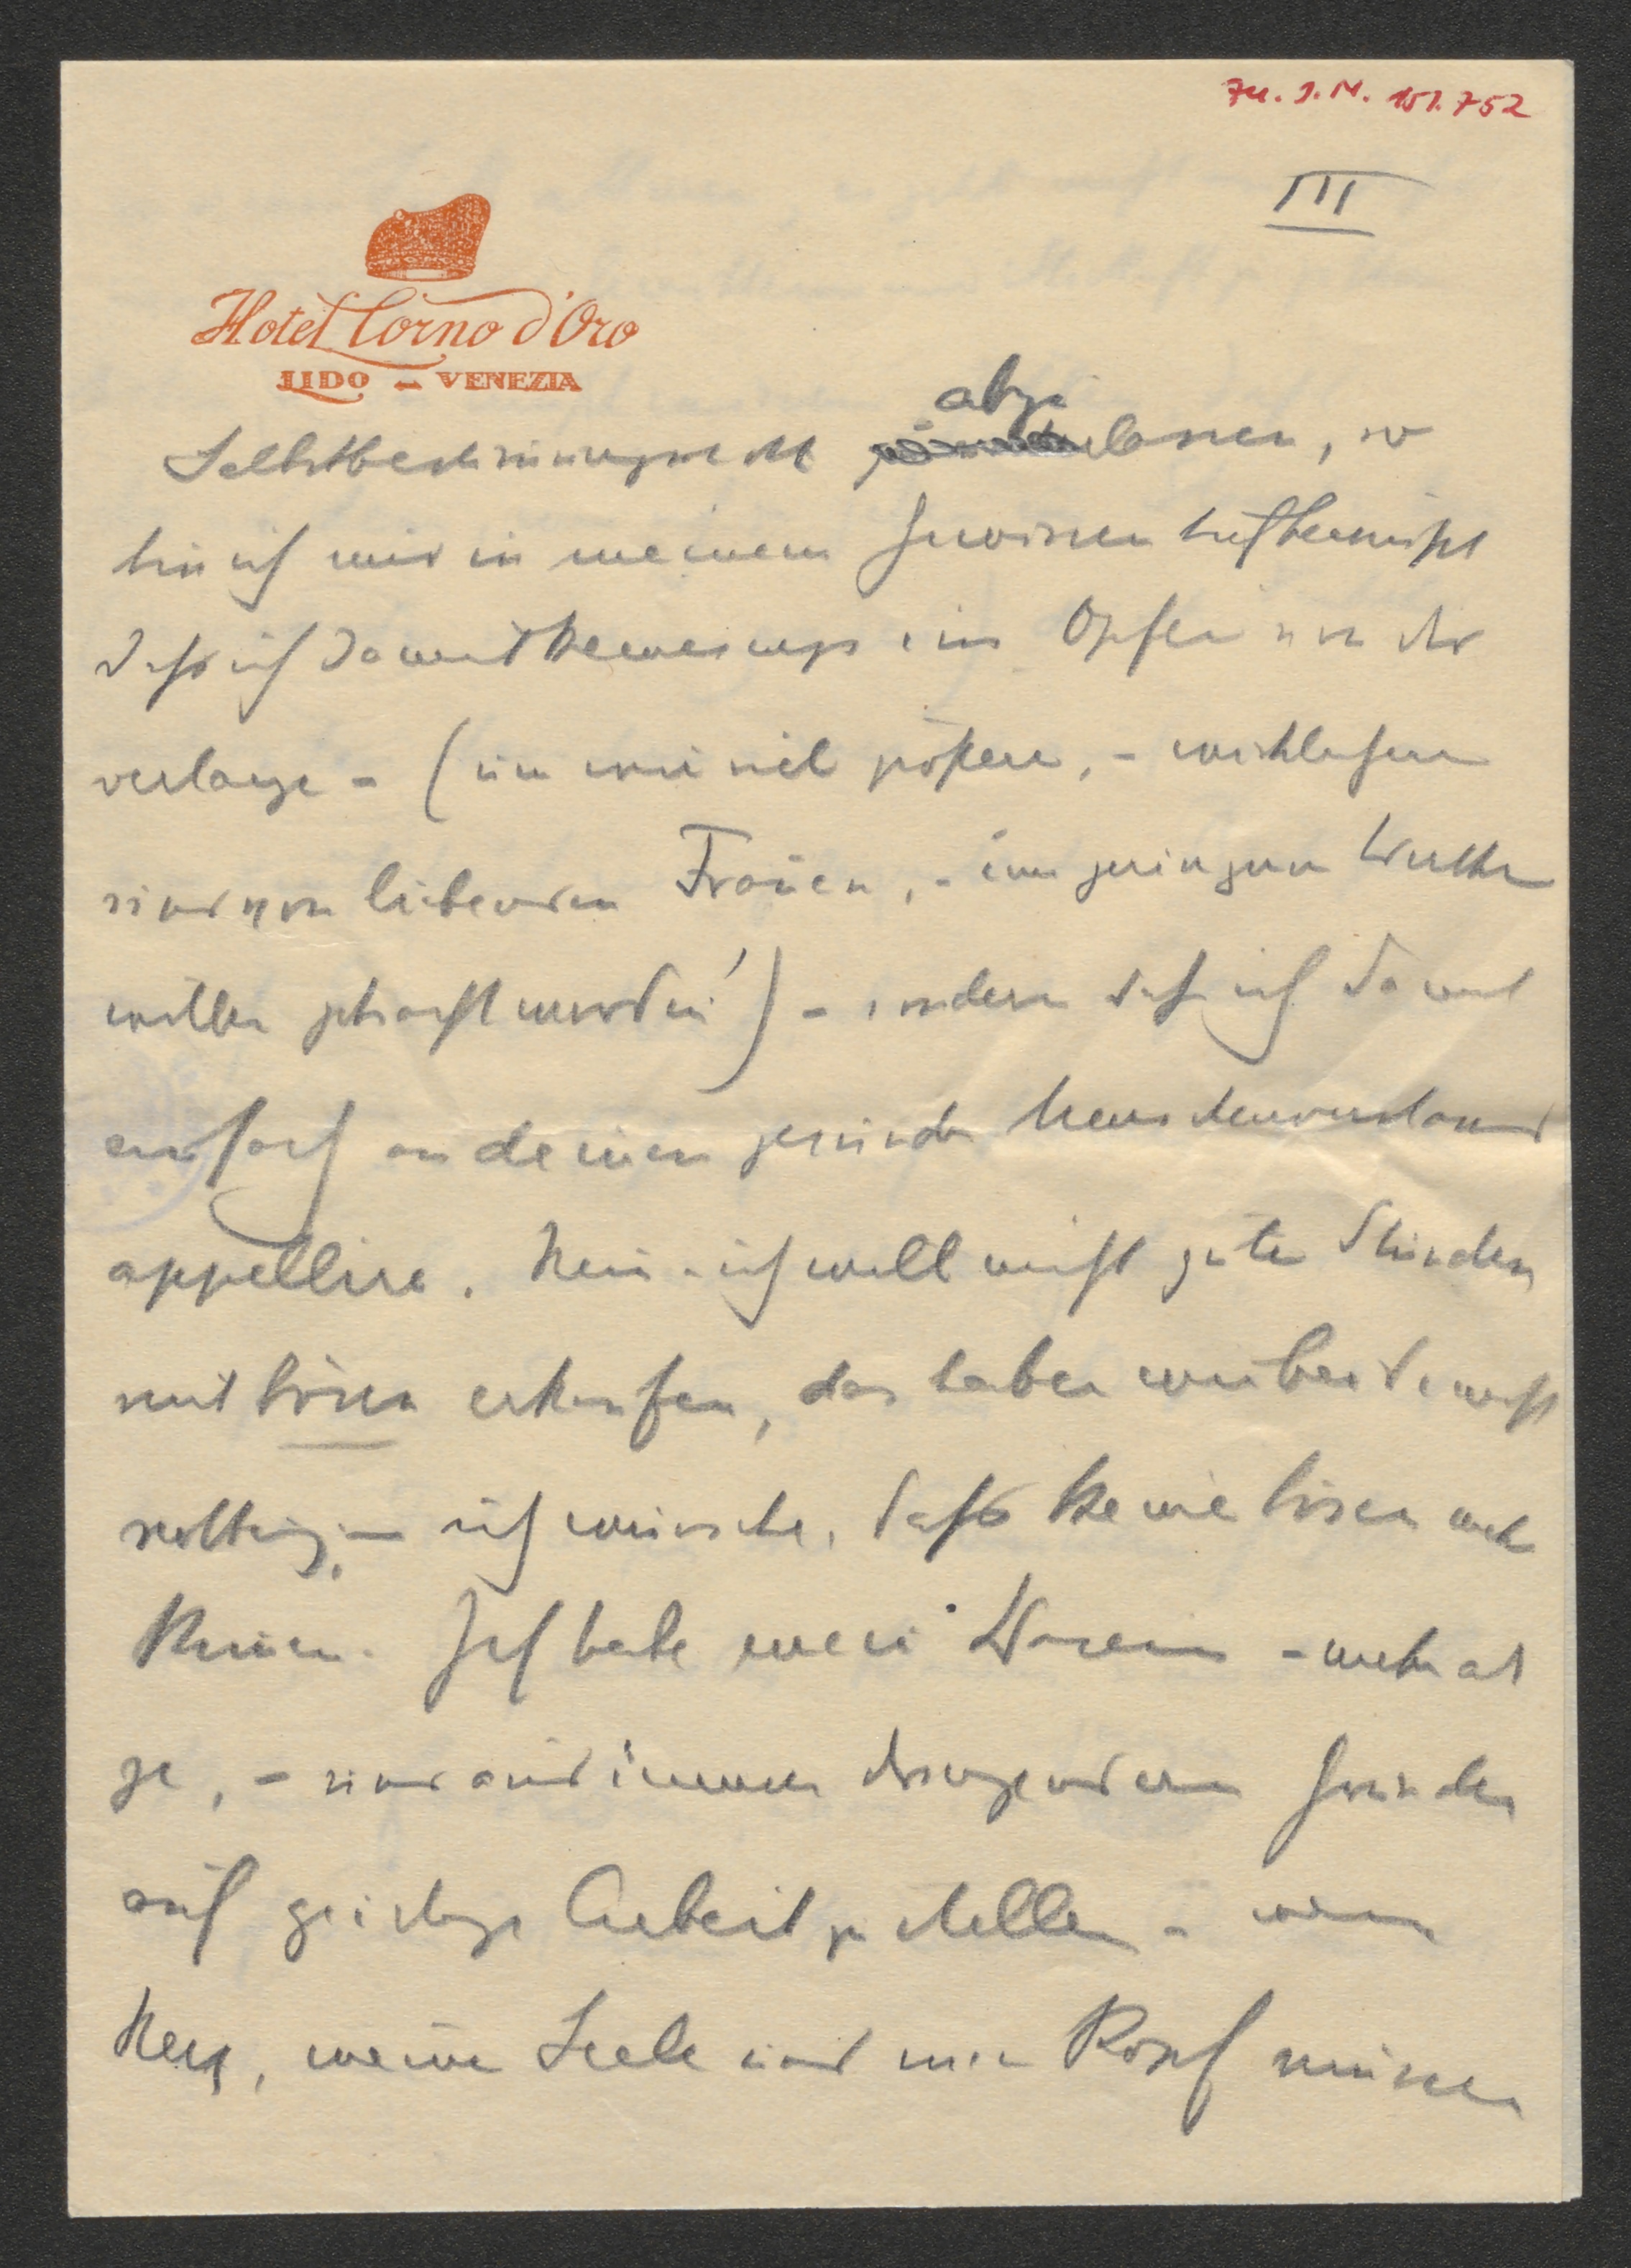 Zu. I.N. 151.752
III
Hotel Corno d'Oro
LIDO – VENEZIA
abge
Selbstbestimmungsrecht lassen, so
bin ich mir in meinem Gewissen tief bewusst
dass ich damit keineswegs ein Opfer von dir
verlange – (um wie viel größere, –
sind von liebenden Frauen, – um geringerer Werthe
willen gebracht worden!) – sondern daß ich damit
einfach an deinen gesunden Menschenverstand
appellire. Nein – ich will nicht gute Stunden
mit bösen erkaufen, das haben wir beide nicht
nöthig; – ich wünsche, dass keine bösen mehr
kommen. Ich habe mein Dasein – mehr als
je, – und aus immer dringenderen Gründen
auf geistige Arbeit zu stellen – mein
Herz, meine Seele und mein Kopf müssen